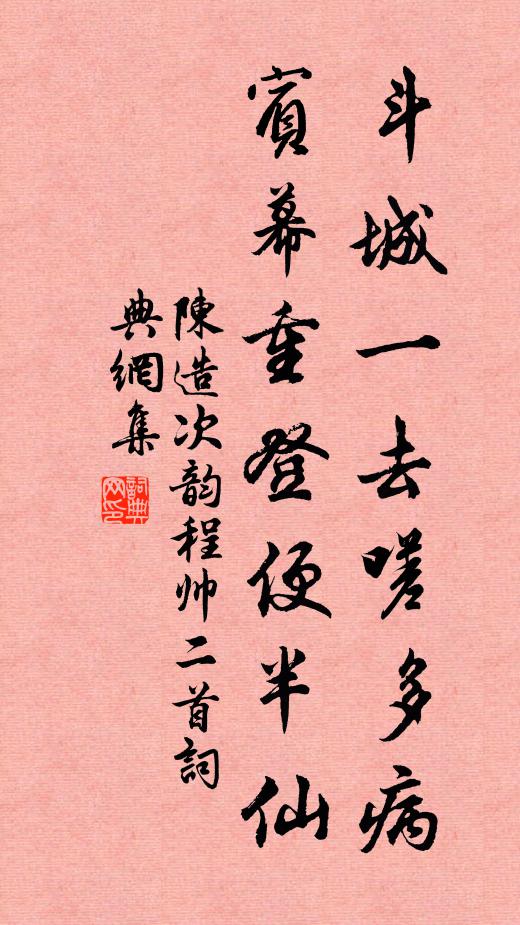 斗城一去嗟多病
賓幕重登便半仙
陳造次韵程帅二首詞
典網集
詞典网印